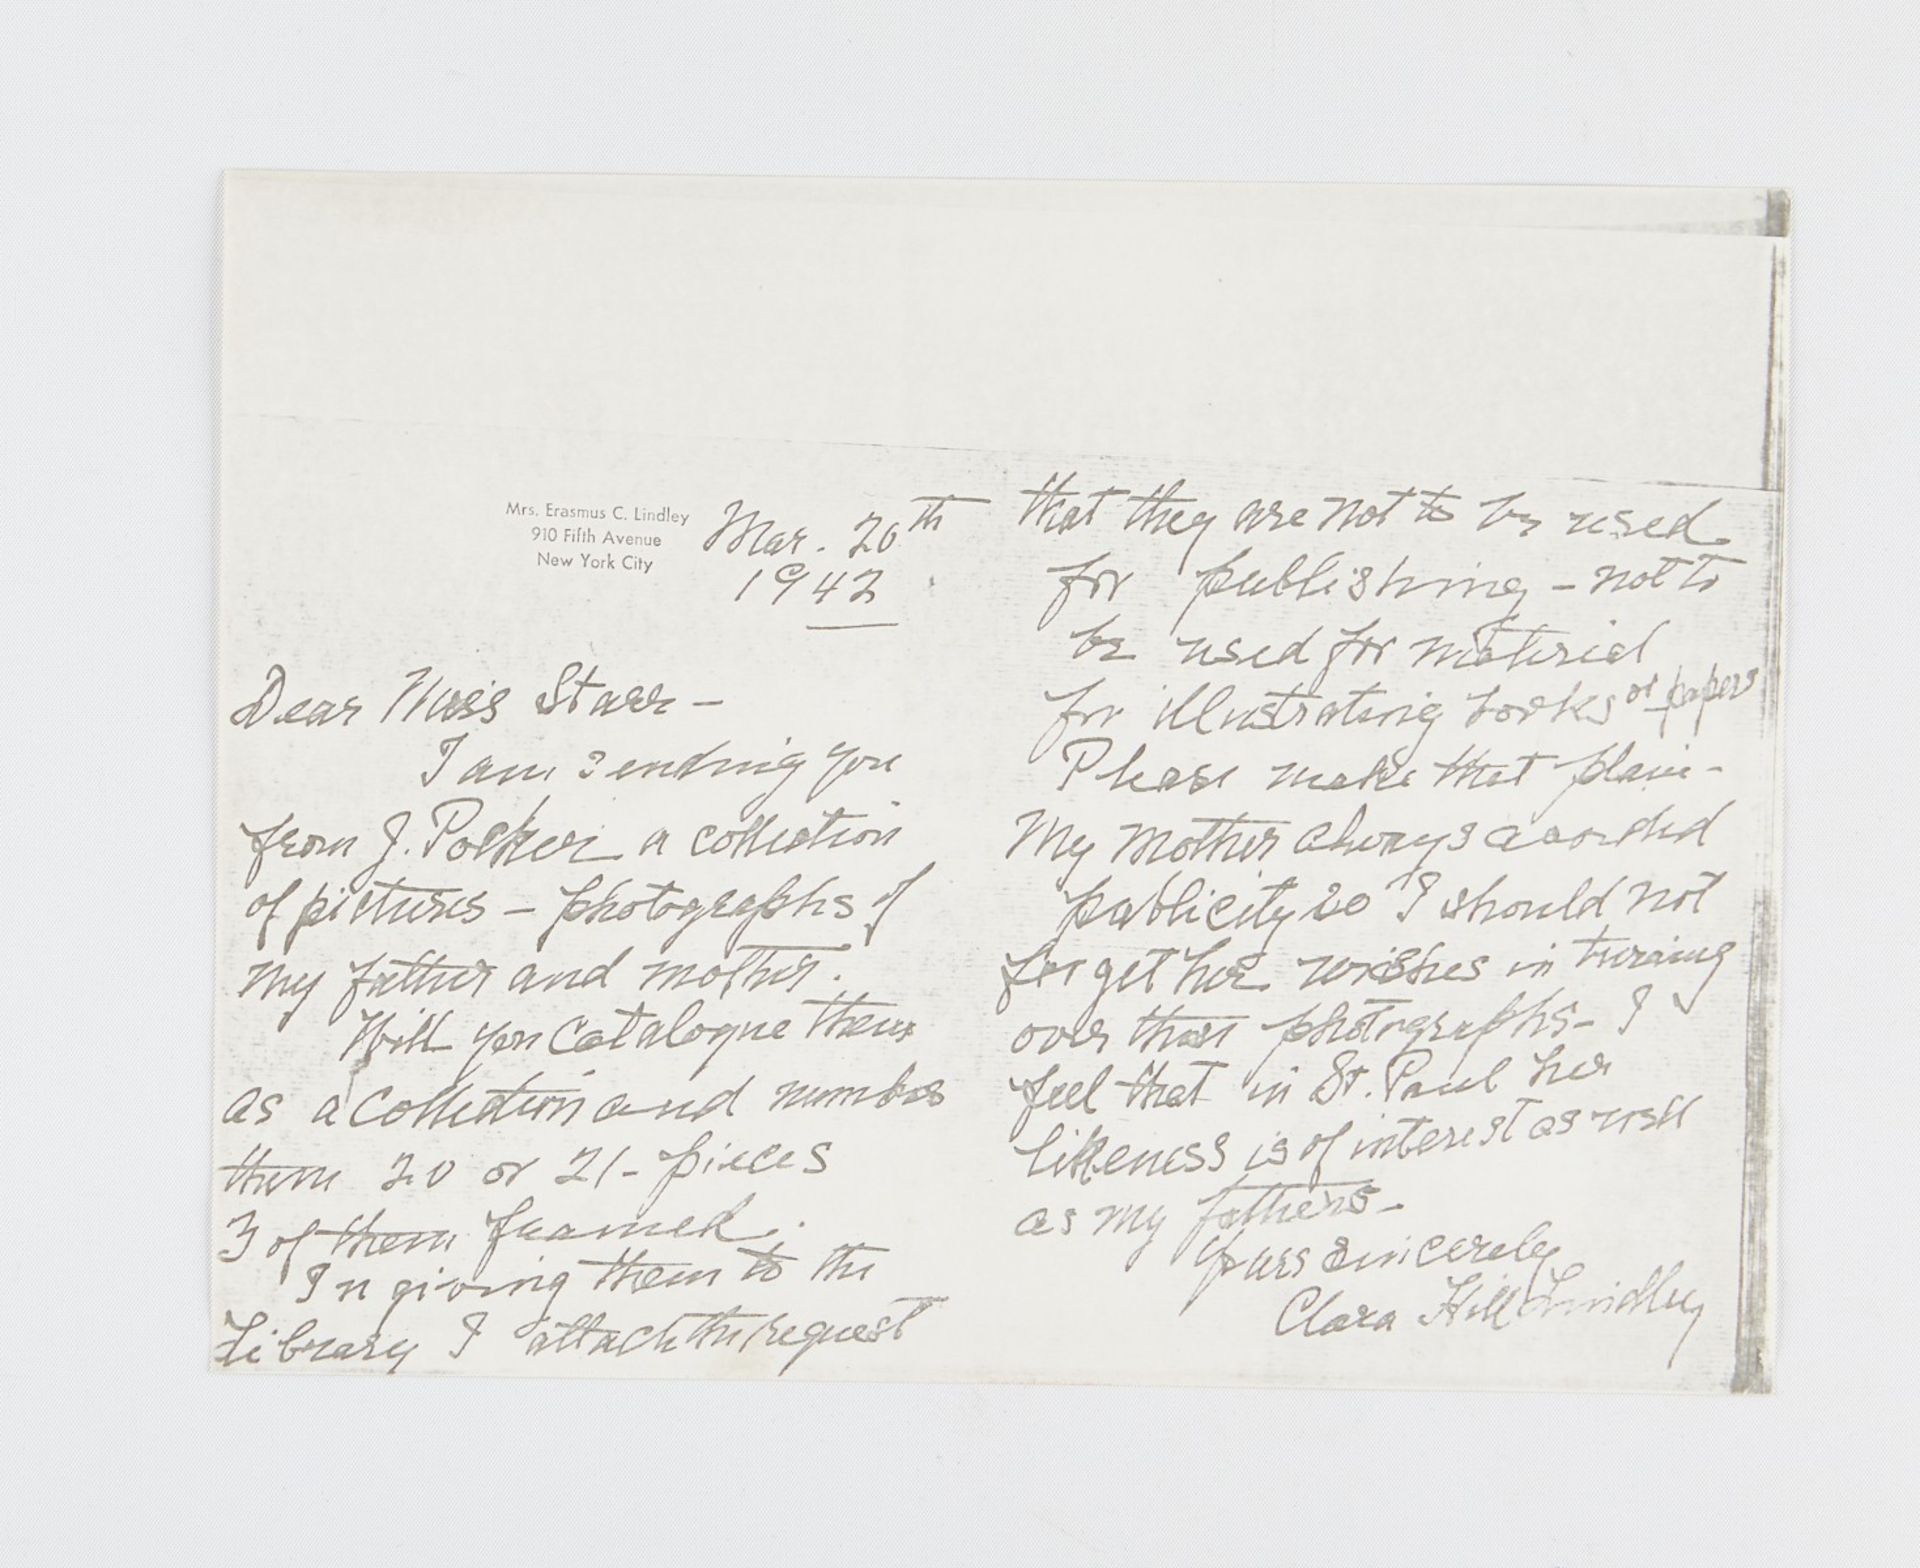 Mrs. Erasmus C. Lindley
910 Fifth Avenue
New York City
Mar. 20th
1942
Dear Miss Starr -
I am sending you
from J. Pocker a collection
of pictures - photographs of
my father and mother.
Will you catalogue them
as a collection and number
them 20 or 21 - pieces
3 of them framed.
In giving them to the
Library I attach the request
that they are not to be used
for publishing - not to
be used for material
for illustrating books or papers
Please make that plain -
My mother always avoided
publicity so I should not
forget her wishes in turning
over these photographs - I
feel that in St. Paul her
likeness is of interest as well
as my fathers -
Yours sincerely
Clara Hill Lindley